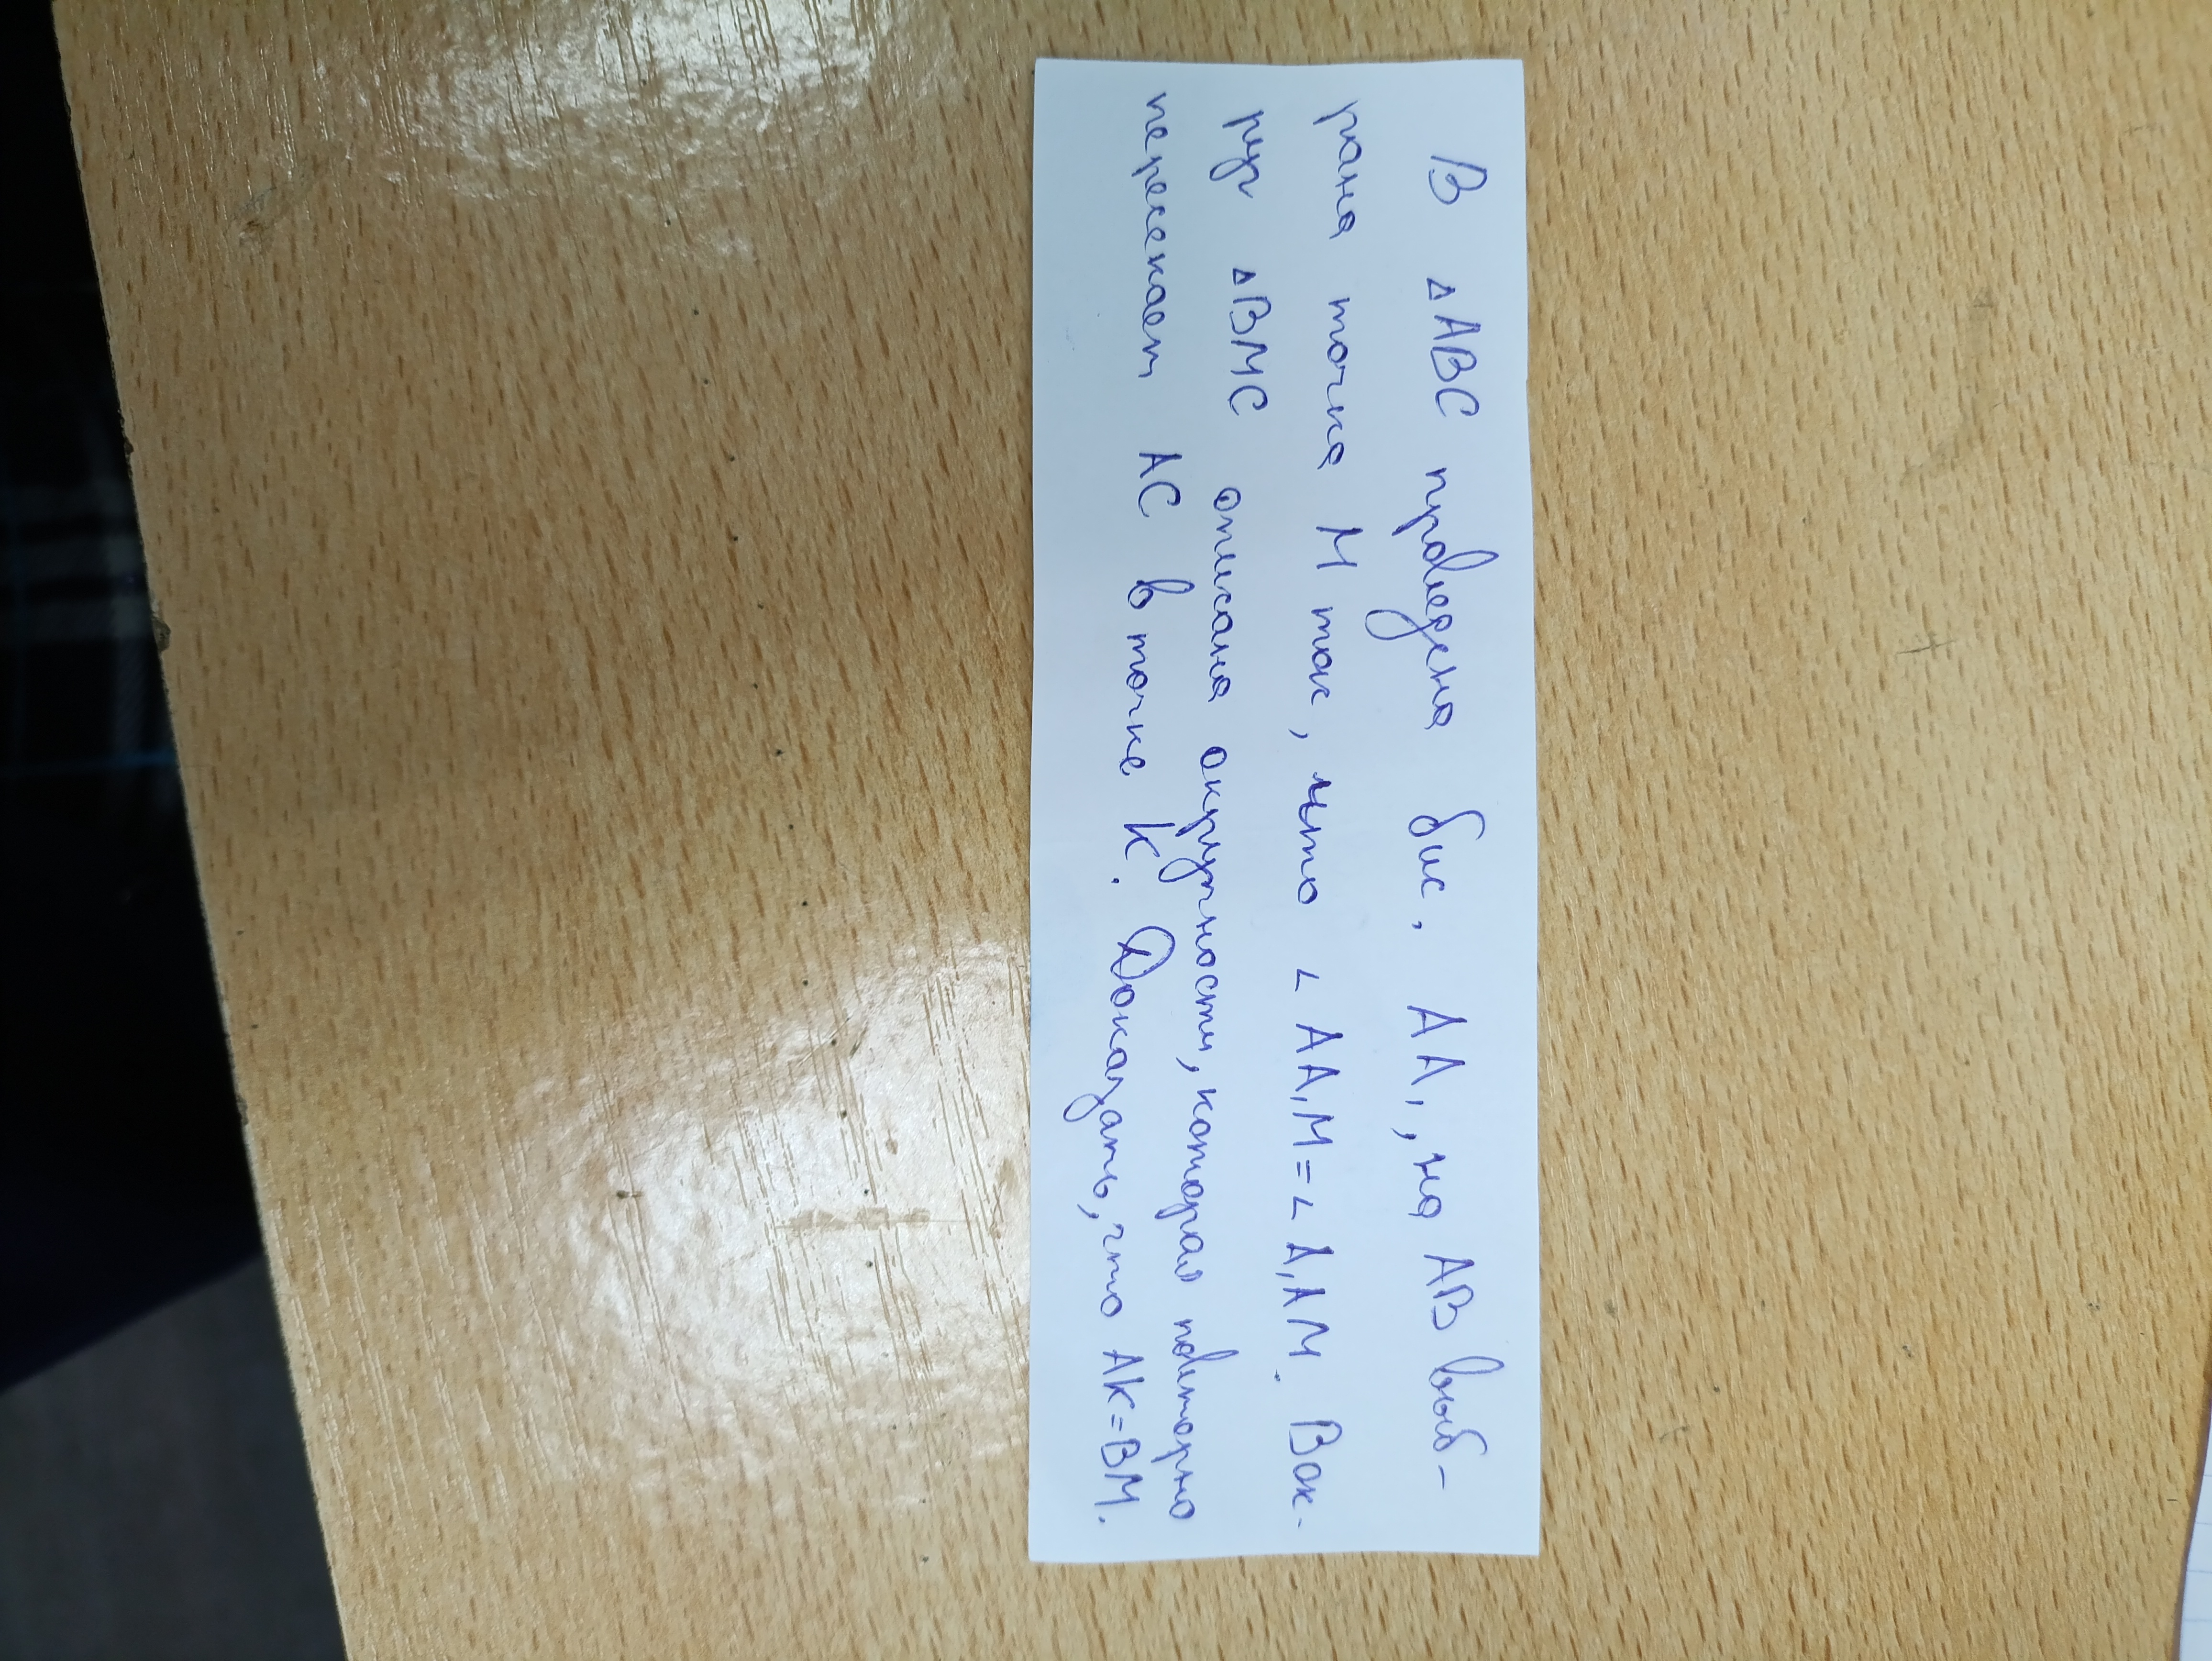 В △ABC проведена бис. AA₁, на AB выб-
рана точка M так, что ∠AA₁M=∠A₁AM. Вок-
руг △BMC описана окружность, которая повторно
пересекает AC в точке K. Доказать, что AK=BM.